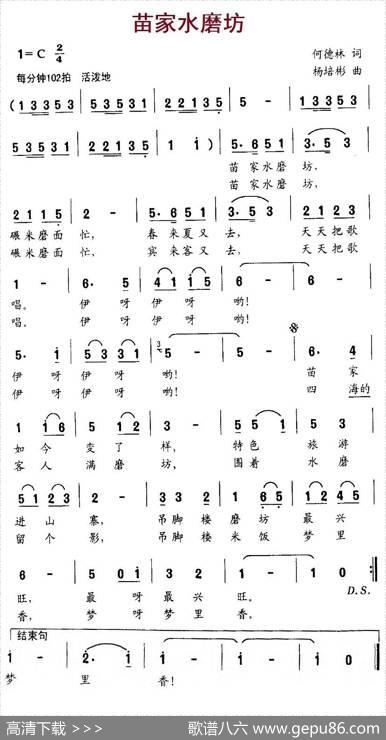 苗家水磨坊
1=C 2/4
何德林 词
每分钟102拍 活泼地
杨培彬 曲
(13353 | 53531 | 22135 | 5 - | 13353 |
53531 | 22135 | 1 i) | 5·651 | 3·53 |
苗家水磨坊,
苗家水磨坊,
2115 | 2 - | 5·651 | 3·53 | 2123 |
碾米磨面忙, 春来夏又去, 天天把歌
碾米磨面忙, 宾来客又去, 天天把歌
1 - | 6· 5 | 4115 | 6 - | 6 - |
唱。 伊呀伊呀哟!
唱。 伊呀伊呀哟!
5· i | 5331 | 5 - | 5 - | 6· 4 |
伊呀伊呀哟! 苗家
伊呀伊呀哟! 四海的
1 16 | 5 12 | 2 - | 55 1 | 5 5 |
如今变了样, 特色旅游
客人满磨坊, 围着水磨
5123 | 2 - | 2 2 | 1 65 | 1245 |
进山寨, 吊脚楼磨坊最兴
留个影, 吊脚楼米饭梦里
6 - | 5 01 | 3 2 | 1 - | 1 0 :||
旺, 最呀最兴旺。
香, 梦呀梦里香。
D.S.
结束句
i - | 2· i | i - | i - | i 0 ||
梦里香!
高清下载 >>>
歌谱八六 www.gepu86.com